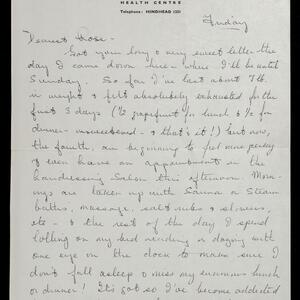 HEALTH CENTRE
Telephone: HINDHEAD
Friday
Dearest Rose -
Got your long & very sweet letter the
day I came down here - where I'll be until
Sunday. So far I've lost about 7 lb.
in weight & felt absolutely exhausted for the
first 3 days (½ grapefruit for lunch & ½ for
dinner - & that's it!) but now,
the fourth, am beginning to feel more perky
& even have an appointment in the
hairdressing Salon this afternoon. Morn-
ings are taken up with Sauna or Steam
baths, massage, salt rubs & showers,
etc - & the rest of the day I spend
lolling on my bed reading or dozing with
one eye on the clock to make sure I
don't fall asleep & miss my sumptuous lunch
or dinner! It's got so I've become addicted